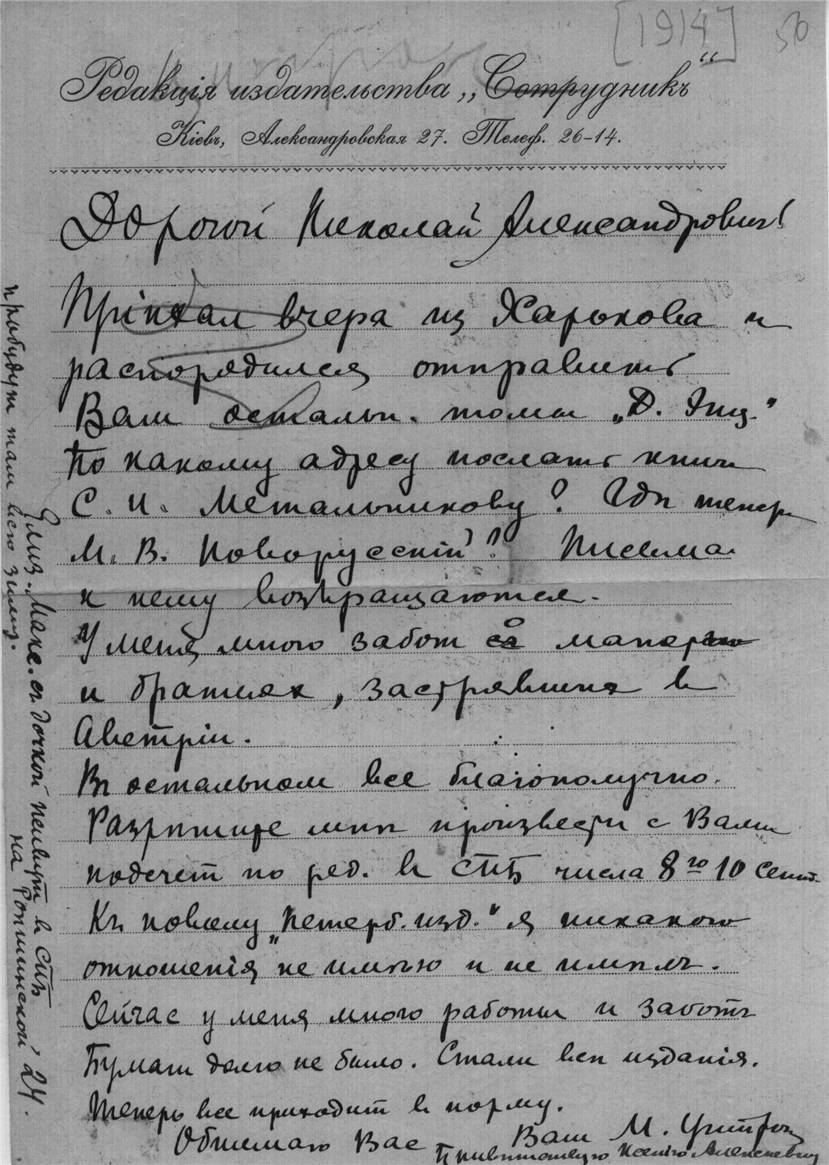 [1914]
50
Редакція издательства „Сотрудникъ“
Кіевъ, Александровская 27. Телеф. 26-14.
Дорогой Николай Александрович!
Пріѣхал вчера из Харькова и
распорядился отправить
Вам остальн. томы „D. Энц.“
По какому адресу послать книги
С. И. Метальникову? Гдѣ теперь
М. В. Новорусскій? Письма
к нему возвращаются.
У меня много забот о матери
и братьях, застрявших в
Австріи.
В остальном все благополучно.
Разрѣшите мнѣ произвести с Вами
подсчет по ред. в СПБ числа 8го 10 Сент.
Къ новому „Петерб. изд.“ я никакого
отношенія не имѣю и не имѣлъ.
Сейчас у меня много работы и заботъ
Бумаги долго не было. Стали всѣ изданія.
Теперь все приходит в норму.
Обнимаю Вас
Ваш М.
Привѣтствую Ксенію Алексѣевну
Елиз. Макс. съ дочкой живут в СПБ
на Ропшинской 24.
пробудут там всю зиму.